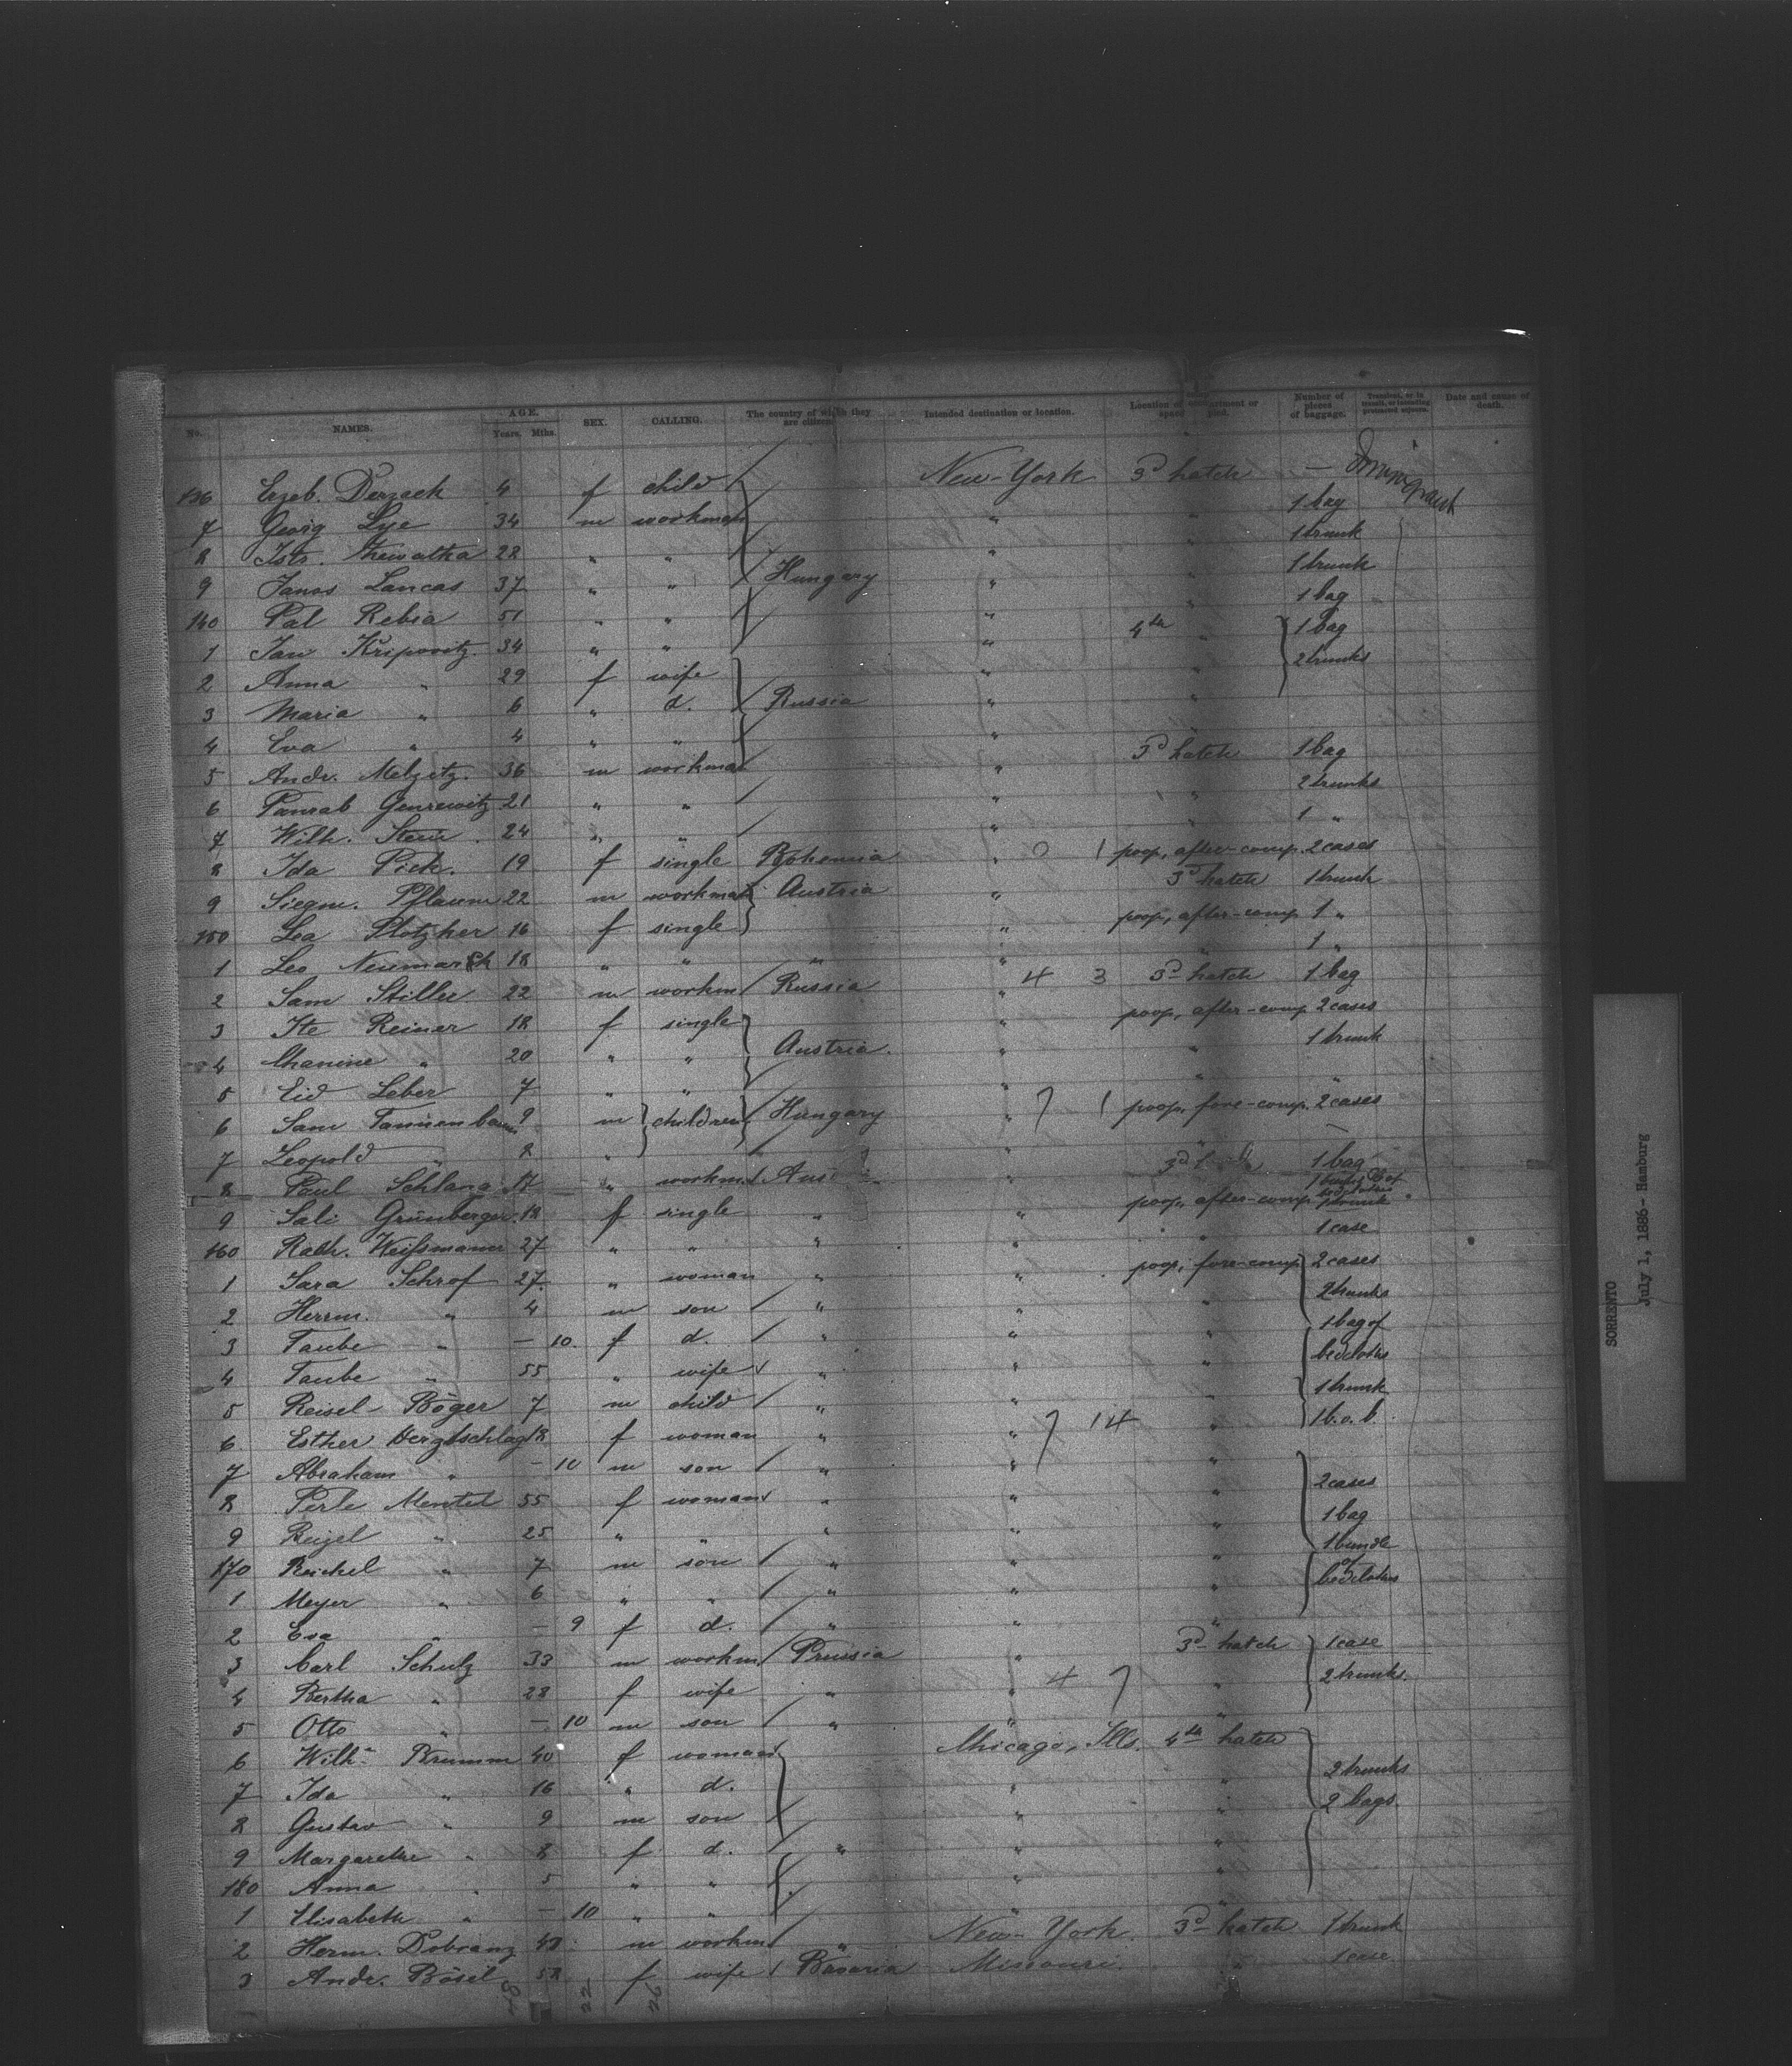 No. NAMES. AGE. Years. Mths. SEX. CALLING. The country of which they are citizens. Intended destination or location. Location of compartment or space occupied. Number of pieces of baggage. Transient, or in transit, or intending protracted sojourn. Date and cause of death.
136 Erzeb. Derzsek 4 f child New-York 3d hatch — Immigrant
7 Georg Lye 34 m workman " " 1 bag
8 Istr. 28 " " " " 1 trunk
9 Janos Lancas 37 " " Hungary " " 1 trunk
140 Pal Rebia 51 " " " " 1 bag
1 Jan Kripovitz 34 " " " 4th " 1 bag
2 Anna " 29 f wife " " 2 trunks
3 Maria " 6 " d. Russia " "
4 Eva " 4 " " " "
5 Andr. Melzetz. 36 m workman " 3d hatch 1 bag
6 Genrewitz 21 " " " " 2 trunks
7 Wilh. Stein 24 " " " " 1 "
8 Ida Pick. 19 f single Bohemia " 0 1 poop, after-comp. 2 cases
9 Siegm. Pflaum 22 m workman Austria " 3d hatch 1 trunk
150 Lea Plotzker 16 f single " poop, after-comp 1 "
1 Leo Neumark 18 " " " " " 1 "
2 Sam Stiller 22 m workm Russia " 4 3 3d hatch 1 bag
3 Ite Reiner 18 f single " poop, after-comp 2 cases
4 Chanine " 20 " " Austria. " " 1 trunk
5 Eid Leber 7 " " " " "
6 Sam Tannenbaum 9 m children Hungary " 7 1 poop, fore-comp. 2 cases
7 Leopold " 8 " " " —
8 Paul Schlana " workm. " 3d 1 bag
9 Sali Grünberger 18 f single " " poop, after-comp 1 trunk
160 Kath. Weißmann 27 " " " " " 1 case
1 Sara Schrof 27 " woman " " poop, fore-comp 2 cases
2 Herm. " 4 m son " " " 2 trunks
3 Taube " — 10 f d. " " " 1 bag of
4 Taube " 55 " wife " " " bedclothes
5 Reisel Böger 7 m child " " " 1 trunk
6 Esther 18 f woman " " 7 14 " 1 b.o.b.
7 Abraham " — 10 m son " " "
8 Perle Mentel 55 f woman " " " 2 cases
9 Reizel " 25 " " " " " 1 bag
170 Reichel " 7 m son " " " 1 bundle of
1 Meyer " 6 " " " " " bedclothes
2 Eva " — 9 f d. " " "
3 Carl Schulz 33 m workm Prussia " 3d hatch 1 case
4 Bertha " 28 f wife " " 4 7 " 2 trunks.
5 Otto " — 10 m son " " "
6 Wilh. Brumm 40 f woman Chicago, Ills. 4th hatch
7 Ida " 16 " d. " " 2 trunks
8 Gustav " 9 m son " " 2 bags
9 Margarethe " 8 f d. " " "
180 Anna " 5 " " " "
1 Elisabeth " — 10 " " " "
2 Herm. Dobranz 48 m workm " New-York. 3d hatch 1 trunk
3 Andr. Bösil 58 f wife Bavaria Missouri. " 1 case.
22 26
SORRENTO
July 1, 1886 - Hamburg